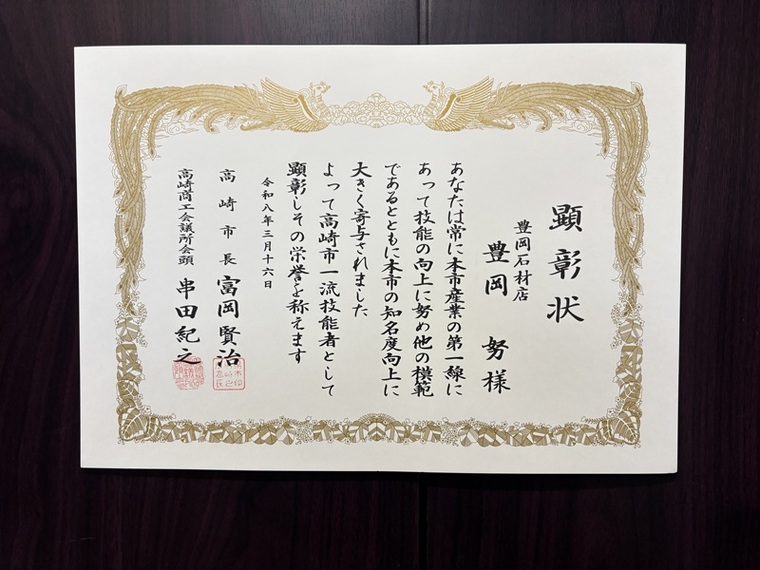 顕彰状
豊岡石材店
豊岡 努 様
あなたは常に本市産業の第一線に
あって技能の向上に努め他の模範
であるとともに本市の知名度向上に
大きく寄与されました
よって高崎市一流技能者として
顕彰しその栄誉を称えます
令和八年三月十六日
高崎市長 富岡賢治
高崎商工会議所会頭 串田紀之